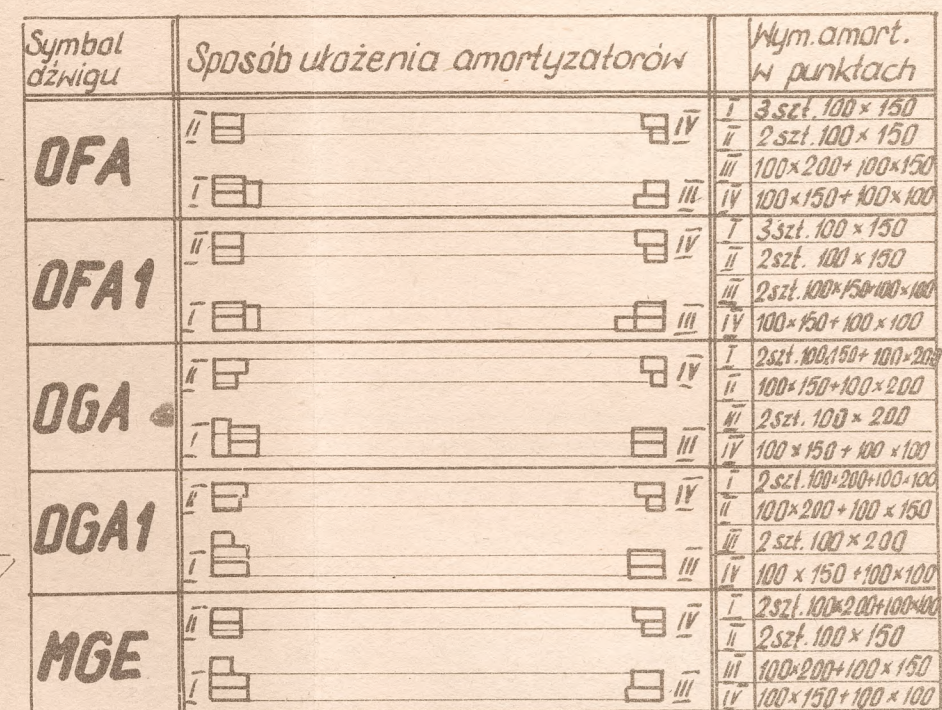 Symbol dźwigu
Sposób ułożenia amortyzatorów
Wym. amort. w punktach
OFA
II IV
I III
I 3 szt. 100 × 150
II 2 szt. 100 × 150
III 100×200+100×150
IV 100×150+100×100
OFA1
II IV
I III
I 3 szt. 100 × 150
II 2 szt. 100 × 150
III 2 szt. 100×150+100×100
IV 100×150+100×100
OGA
II IV
I III
I 2 szt. 100×150+100×200
II 100×150+100×200
III 2 szt. 100 × 200
IV 100×150+100×100
OGA1
II IV
I III
I 2 szt. 100×200+100×100
II 100×200+100×150
III 2 szt. 100×200
IV 100×150+100×100
MGE
II IV
I III
I 2 szt. 100×200+100×100
II 2 szt. 100×150
III 100×200+100×150
IV 100×150+100×100